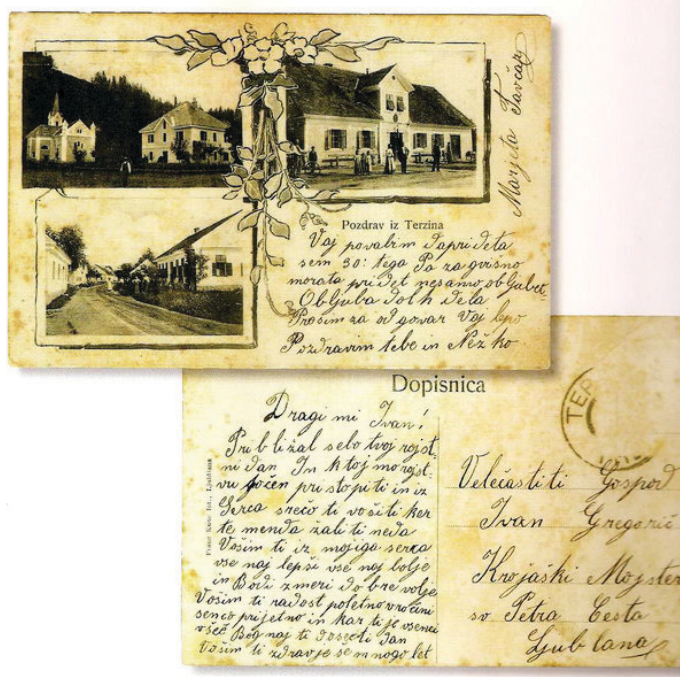 Marjeta Tavčar
Pozdrav iz Terzina
Vaj povabim da pri deta
sem 30: tega Pa za gvisno
morata pri det nesamo obljubet.
Obljuba dolh dela
Prosim za od govar Vaj lepo
Pozdravim tebe in Nežko
Dopisnica
TER
Dragi mi Ivan!
Pri b ližal se lo tvoj rojst
ni dan In k toj mo rojst.
vu pri stopi ti in iz
Serca srečo ti vošiti ker
te menda žali ti neda
Vošim ti iz mojiga serca
vse naj lepši vse naj bolje
in Bodi zmeri do bre volje
Vošim ti radost poletno vročini
senco prijetno in kar ti je vsenci
všeč Bog naj ti dan
Vošim ti zdravje se mnogo let
Velečastiti Gospod
Ivan Gregorič
Krojaški Mojster
sv Petra Cesta
Ljublana